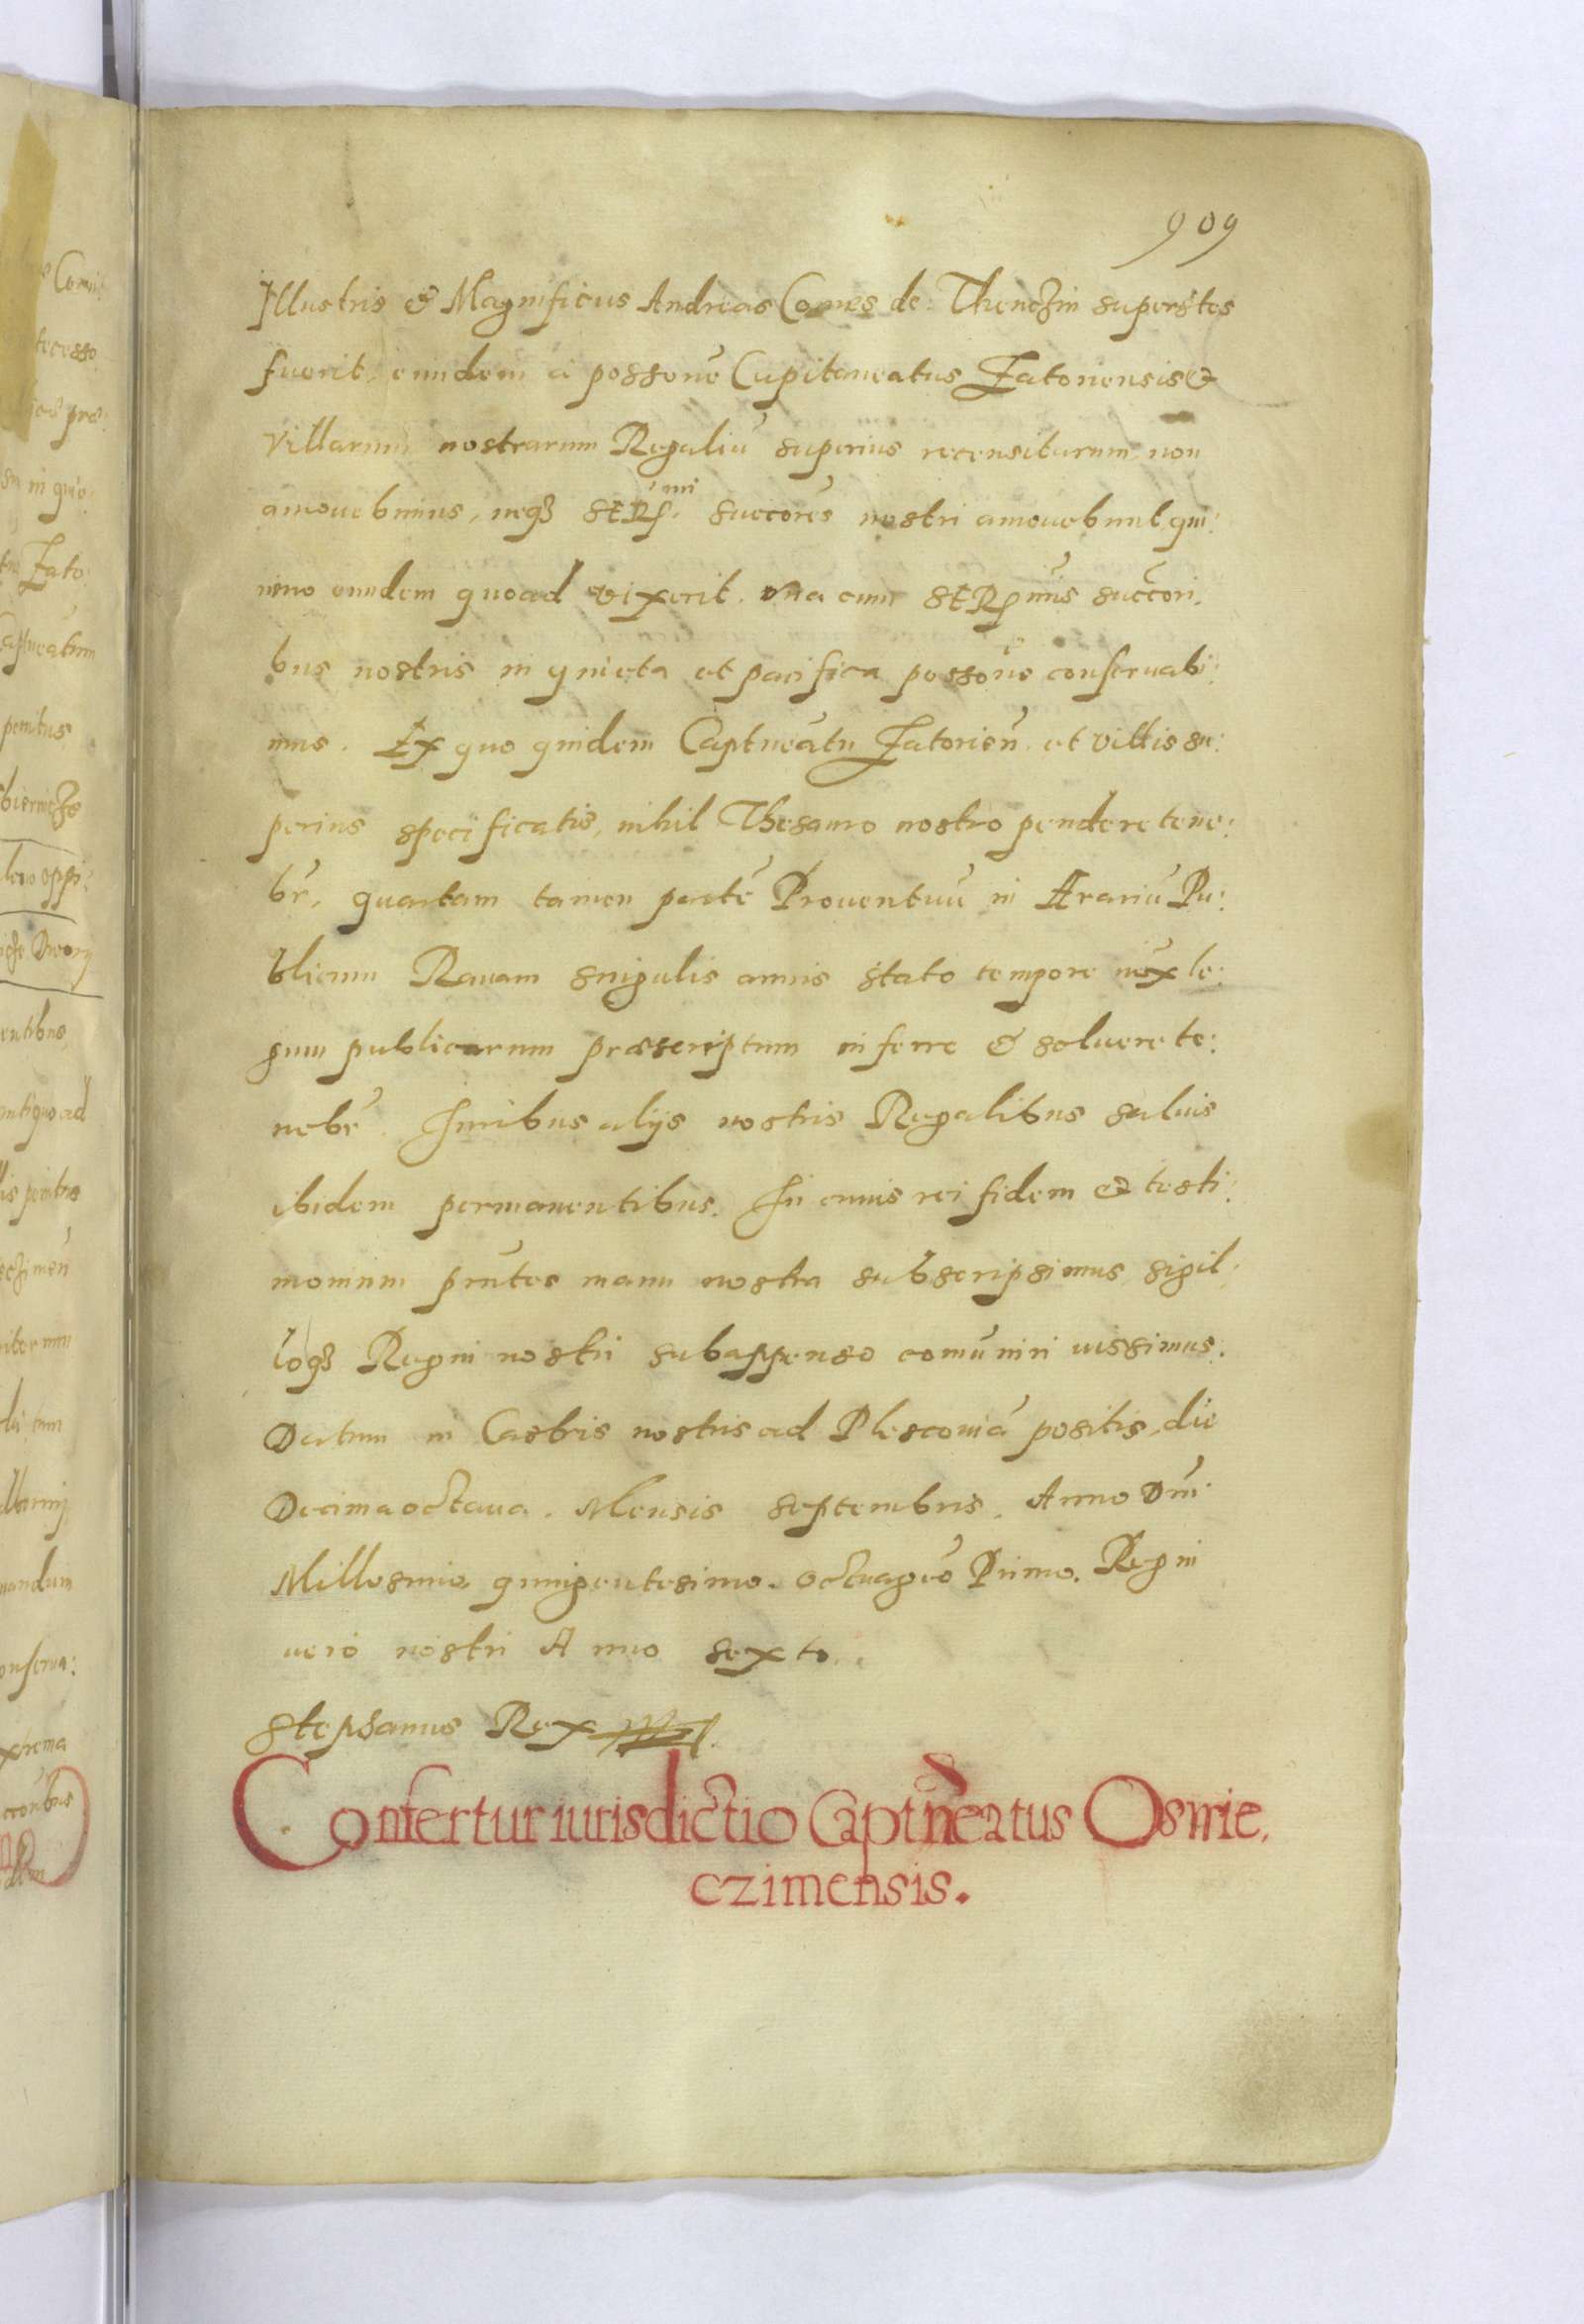 909
Illustris & Magnificus Andreas Comes de Thenczin superstes
fuerit, eundem à possone͂ Capitaneatus Zatoriensis &
villarum nostrarum Regaliu͂ superius recensitarum non
amouebimus, neq3 successores nostri amouebunt, qui:
nimo eundem quoad vixerit. vna cum succ͂ori.
bus nostris in quieta et pacifica posso͂ne conseruabi:
mus. Ex quo quidem Captnea͂tu Zatorien͂. et villis su:
perius specificatis, nihil Thesauro nostro pendere tene:
br͂, quartam tamen parte͂ Prouentuu͂ in Ærariu͂ Pu:
blicum Rauam singulis annis stato tempore iux͂ le:
gum publicarum præscriptum inferre & soluere te:
nebr͂. Iuribus alijs nostris Regalibus saluis
ibidem permanentibus. In cuius rei fidem & testi:
monium prn͂tes manu nostra subscripsimus, sigil:
loq3 Regni nostri subappenso comu͂niri iussimus.
Datum in Castris nostris ad Plescouia͂ positis, die
Decima octaua. Mensis Septembris. Anno Dm͂.
Millesimo quingentesimo. octuageo͂ Primo. Regni
uero nostri Anno sexto.
Stephanus Rex
Confertur iurisdictio Captn͂eatus Oswie.
czimensis.